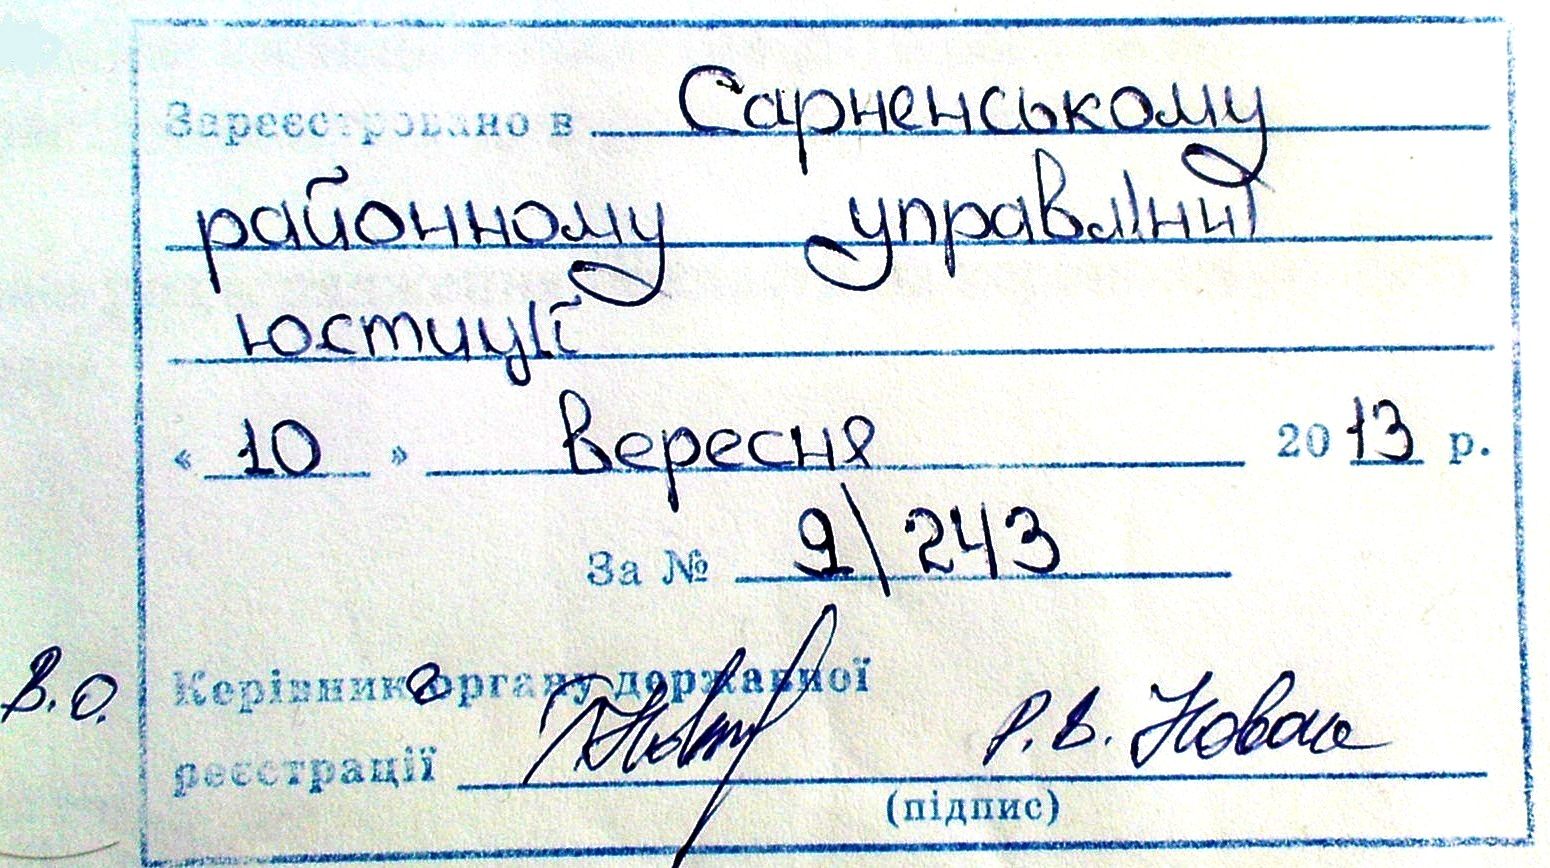 Зареєстровано в Сарненському
районному управлінні
юстиції
« 10 » вересня 2013 р.
За № 9\243
В.О. Керівника органу державної
реєстрації Р.В.
(підпис)